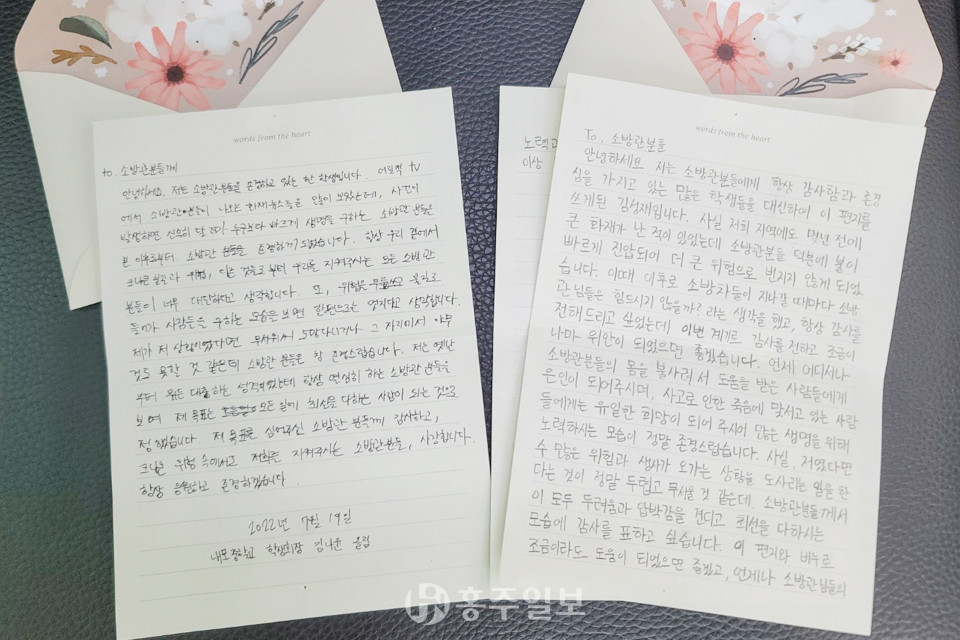 words from the heart
to. 소방관분들께
안녕하세요. 저는 소방관분들을 존경하고 있는 한 학생입니다. 여느적 tv
에서 소방관분들이 나오는 화재 뉴스들을 많이 보았는데, 사고가
발생하면 신속히 달려가 누구보다 빠르게 생명을 구하는 소방관 분들을
본 이후부터 소방관 분들을 존경하기 되었습니다. 항상 우리 곁에서
크나큰 불길과 위험, 다른 것들로부터 우리를 지켜주시는 모든 소방관
분들이 너무 대단하다고 생각합니다. 또, 위험을 무릅쓰고 불길로
들어가 사람들을 구하는 모습을 보면 할 말이 없다고 생각합니다.
제가 저 상황이었다면 무서워서 도망다니거나 그 자리에서 아무
것도 못할 것 같은데 소방관 분들은 참 존경스럽습니다. 저는 옛날
부터 뭐든 대충하는 성격이었는데 항상 열심히 하는 소방관 분들을
보며 제 목표는 모든 일에 최선을 다하는 사람이 되는 것으로
정했습니다. 제 목표를 심어주신 소방관 분들께 감사하고,
크나큰 위험 속에서도 저희를 지켜주시는 소방관분들, 사랑합니다.
항상 응원하고 존경하겠습니다.
2022년 7월 19일
내포중학교 학생회장 김나윤 올림
노력과
이상
words from the heart
To. 소방관분들
안녕하세요 저는 소방관분들에게 항상 감사함과 존경
심을 가지고 있는 많은 학생들을 대신하여 이 편지를
쓰게된 김성재입니다. 사실 저희 지역에도 몇년 전에
큰 화재가 난 적이 있었는데 소방관분들 덕분에 불이
빠르게 진압되어 더 큰 위험으로 번지지 않게 되었
습니다. 이때 이후로 소방차들이 지나갈 때마다 소방
관님들은 힘드시지 않을까? 라는 생각을 했고, 항상 감사를
전해드리고 싶었는데 이번 계기로 감사를 전하고 조금이
나마 위안이 되었으면 좋겠습니다. 언제 어디서나
소방관분들의 몸을 불사리서 도움을 받은 사람들에게
은인이 되어주시며, 사고로 인한 죽음에 맞서고 있는 사람
들에게는 유일한 희망이 되어 주시어 많은 생명을 위해
노력하시는 모습이 정말 존경스럽습니다. 사실, 저였다면
수 많은 위험과 생사가 오가는 상황을 도사리는 일을 한
다는 것이 정말 두렵고 무서울 것 같은데. 소방관분들께서
이 모두 두려움과 압박감을 견디고 최선을 다하시는
모습에 감사를 표하고 싶습니다. 이 편지와 비누로
조금이라도 도움이 되었으면 좋겠고, 언제나 소방관님들의
홍주일보